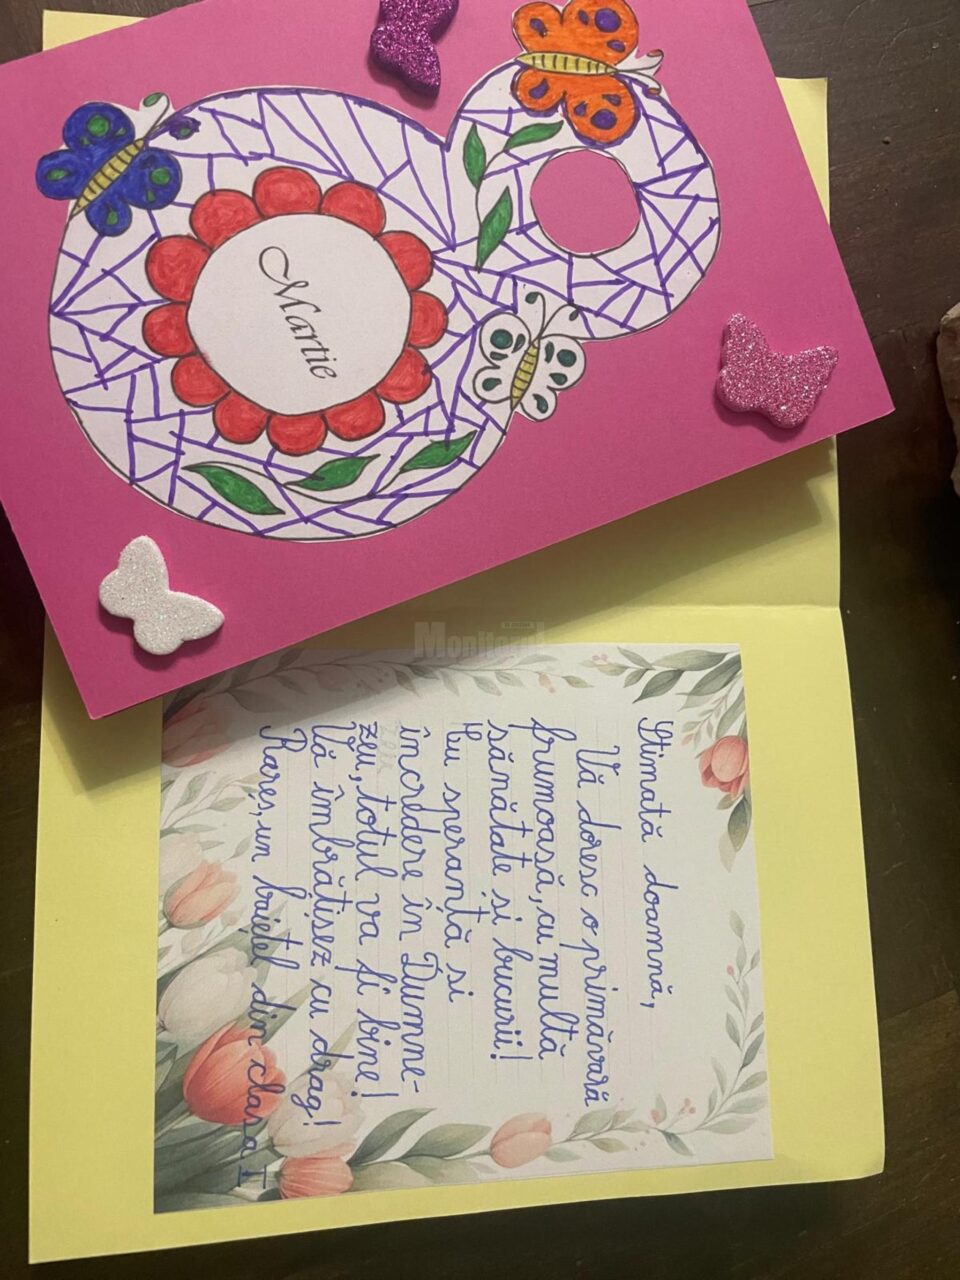 8
Martie
Monitorul
Stimată doamnă,
Vă doresc o primăvară
frumoasă, cu multă
sănătate și bucurii!
Cu speranță și
încredere în Dumne-
zeu, totul va fi bine!
Vă îmbrățișez cu drag!
Rareș, un băiețel din clasa I